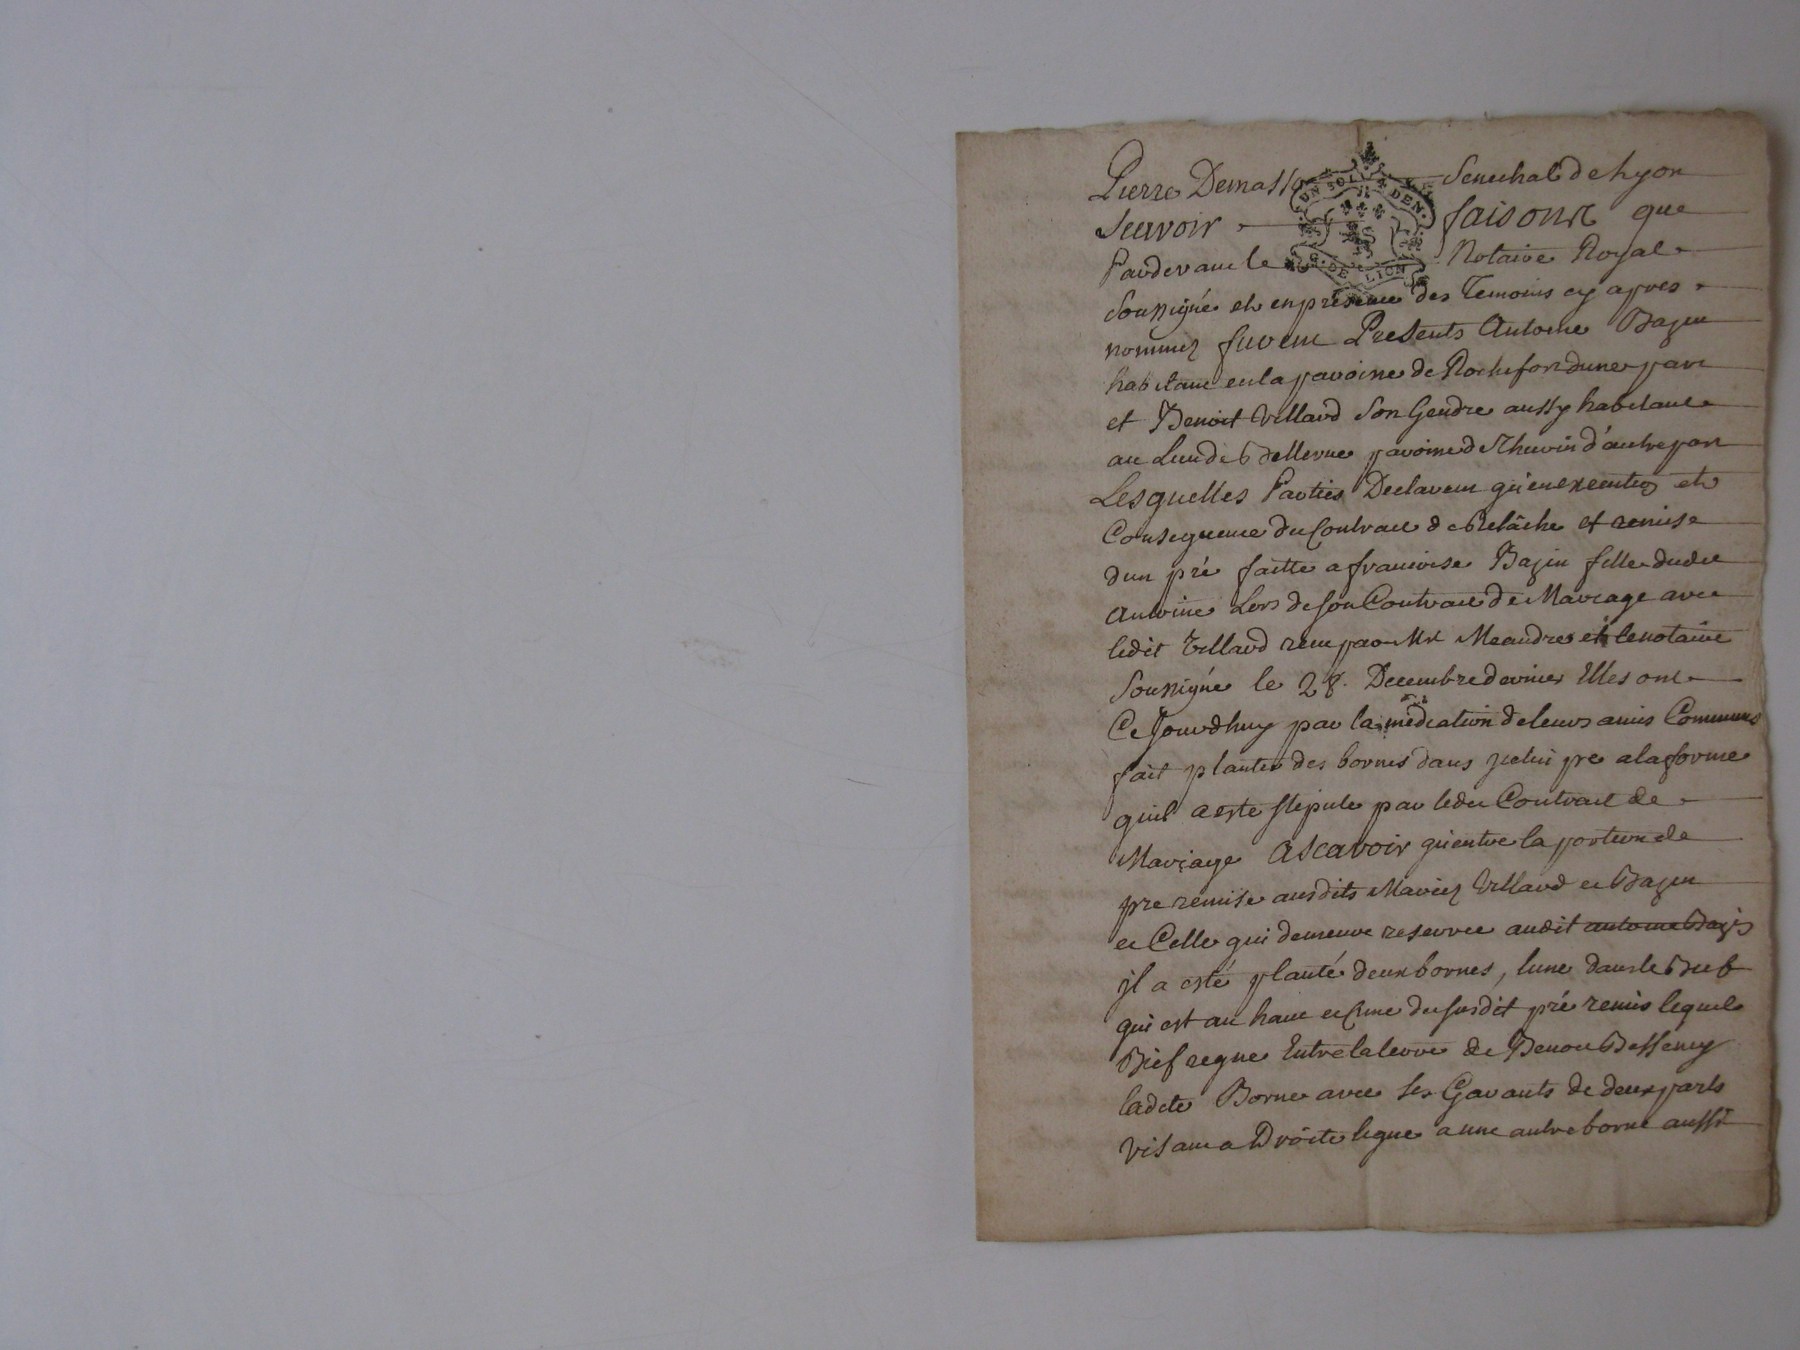 Pierre Demasso Senechal de Lyon
UN SOL 4 DEN.
Scavoir faisons que
G. DE LION
Pardevant le Notaire Royal
Soussigné et en présence des Temoins cy apres
nommez furent Presents Antoine Bazin
habitant en la paroisse de Rochefort dune part
et Benoit Villard Son Gendre aussy habitant
au Lieu de Bellevue paroisse de Thurin d'autre part
Lesquelles Parties Declarent qu'en execution et
Consequence du Contract de Relâche et remise
dun pré faitte a francoise Bazin fille dudit
Antoine Lors de son Contract de Mariage avec
ledit Villard receu par Me Meandre et le notaire
Soussigné le 28. Decembre dernier Elles ont
Ce Jourdhuy par la médiation de leurs amis Communs
fait planter des bornes dans jcelui pre a la forme
quil a esté stipulé par ledit Contract de
Mariage Ascavoir qu'entre la portion de
pre remise ausdits Mariez Villard et Bazin
et Celle qui demeure reservee audit antoine Bazin
jl a esté planté deux bornes, lune dans le Bief
qui est au haut et Cime du susdit pré remis lequel
Bief regne Entre la terre de Benoit Bessenay
ladite Borne avec ses Garants de deux parts
visant a Droite ligne a une autre borne aussi